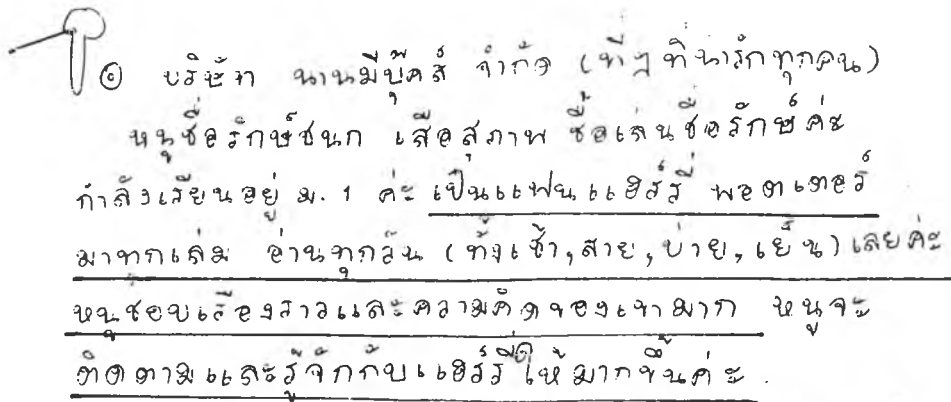 ◎ บริษัท นานมีบุ๊คส์ จำกัด (พี่ๆ ที่น่ารักทุกคน)
หนูชื่อรักษ์ชนก เสือสุภาพ ชื่อเล่นชื่อรักษ์ค่ะ
กำลังเรียนอยู่ ม. 1 ค่ะ เป็นแฟนแฮร์รี่ พอตเตอร์
มาทุกเล่ม อ่านทุกวัน (ทั้งเช้า, สาย, บ่าย, เย็น) เลยค่ะ
หนูชอบเรื่องราวและความคิดของเขามาก หนูจะ
ติดตามและรู้จักกับแฮร์รี่ให้มากขึ้นค่ะ.